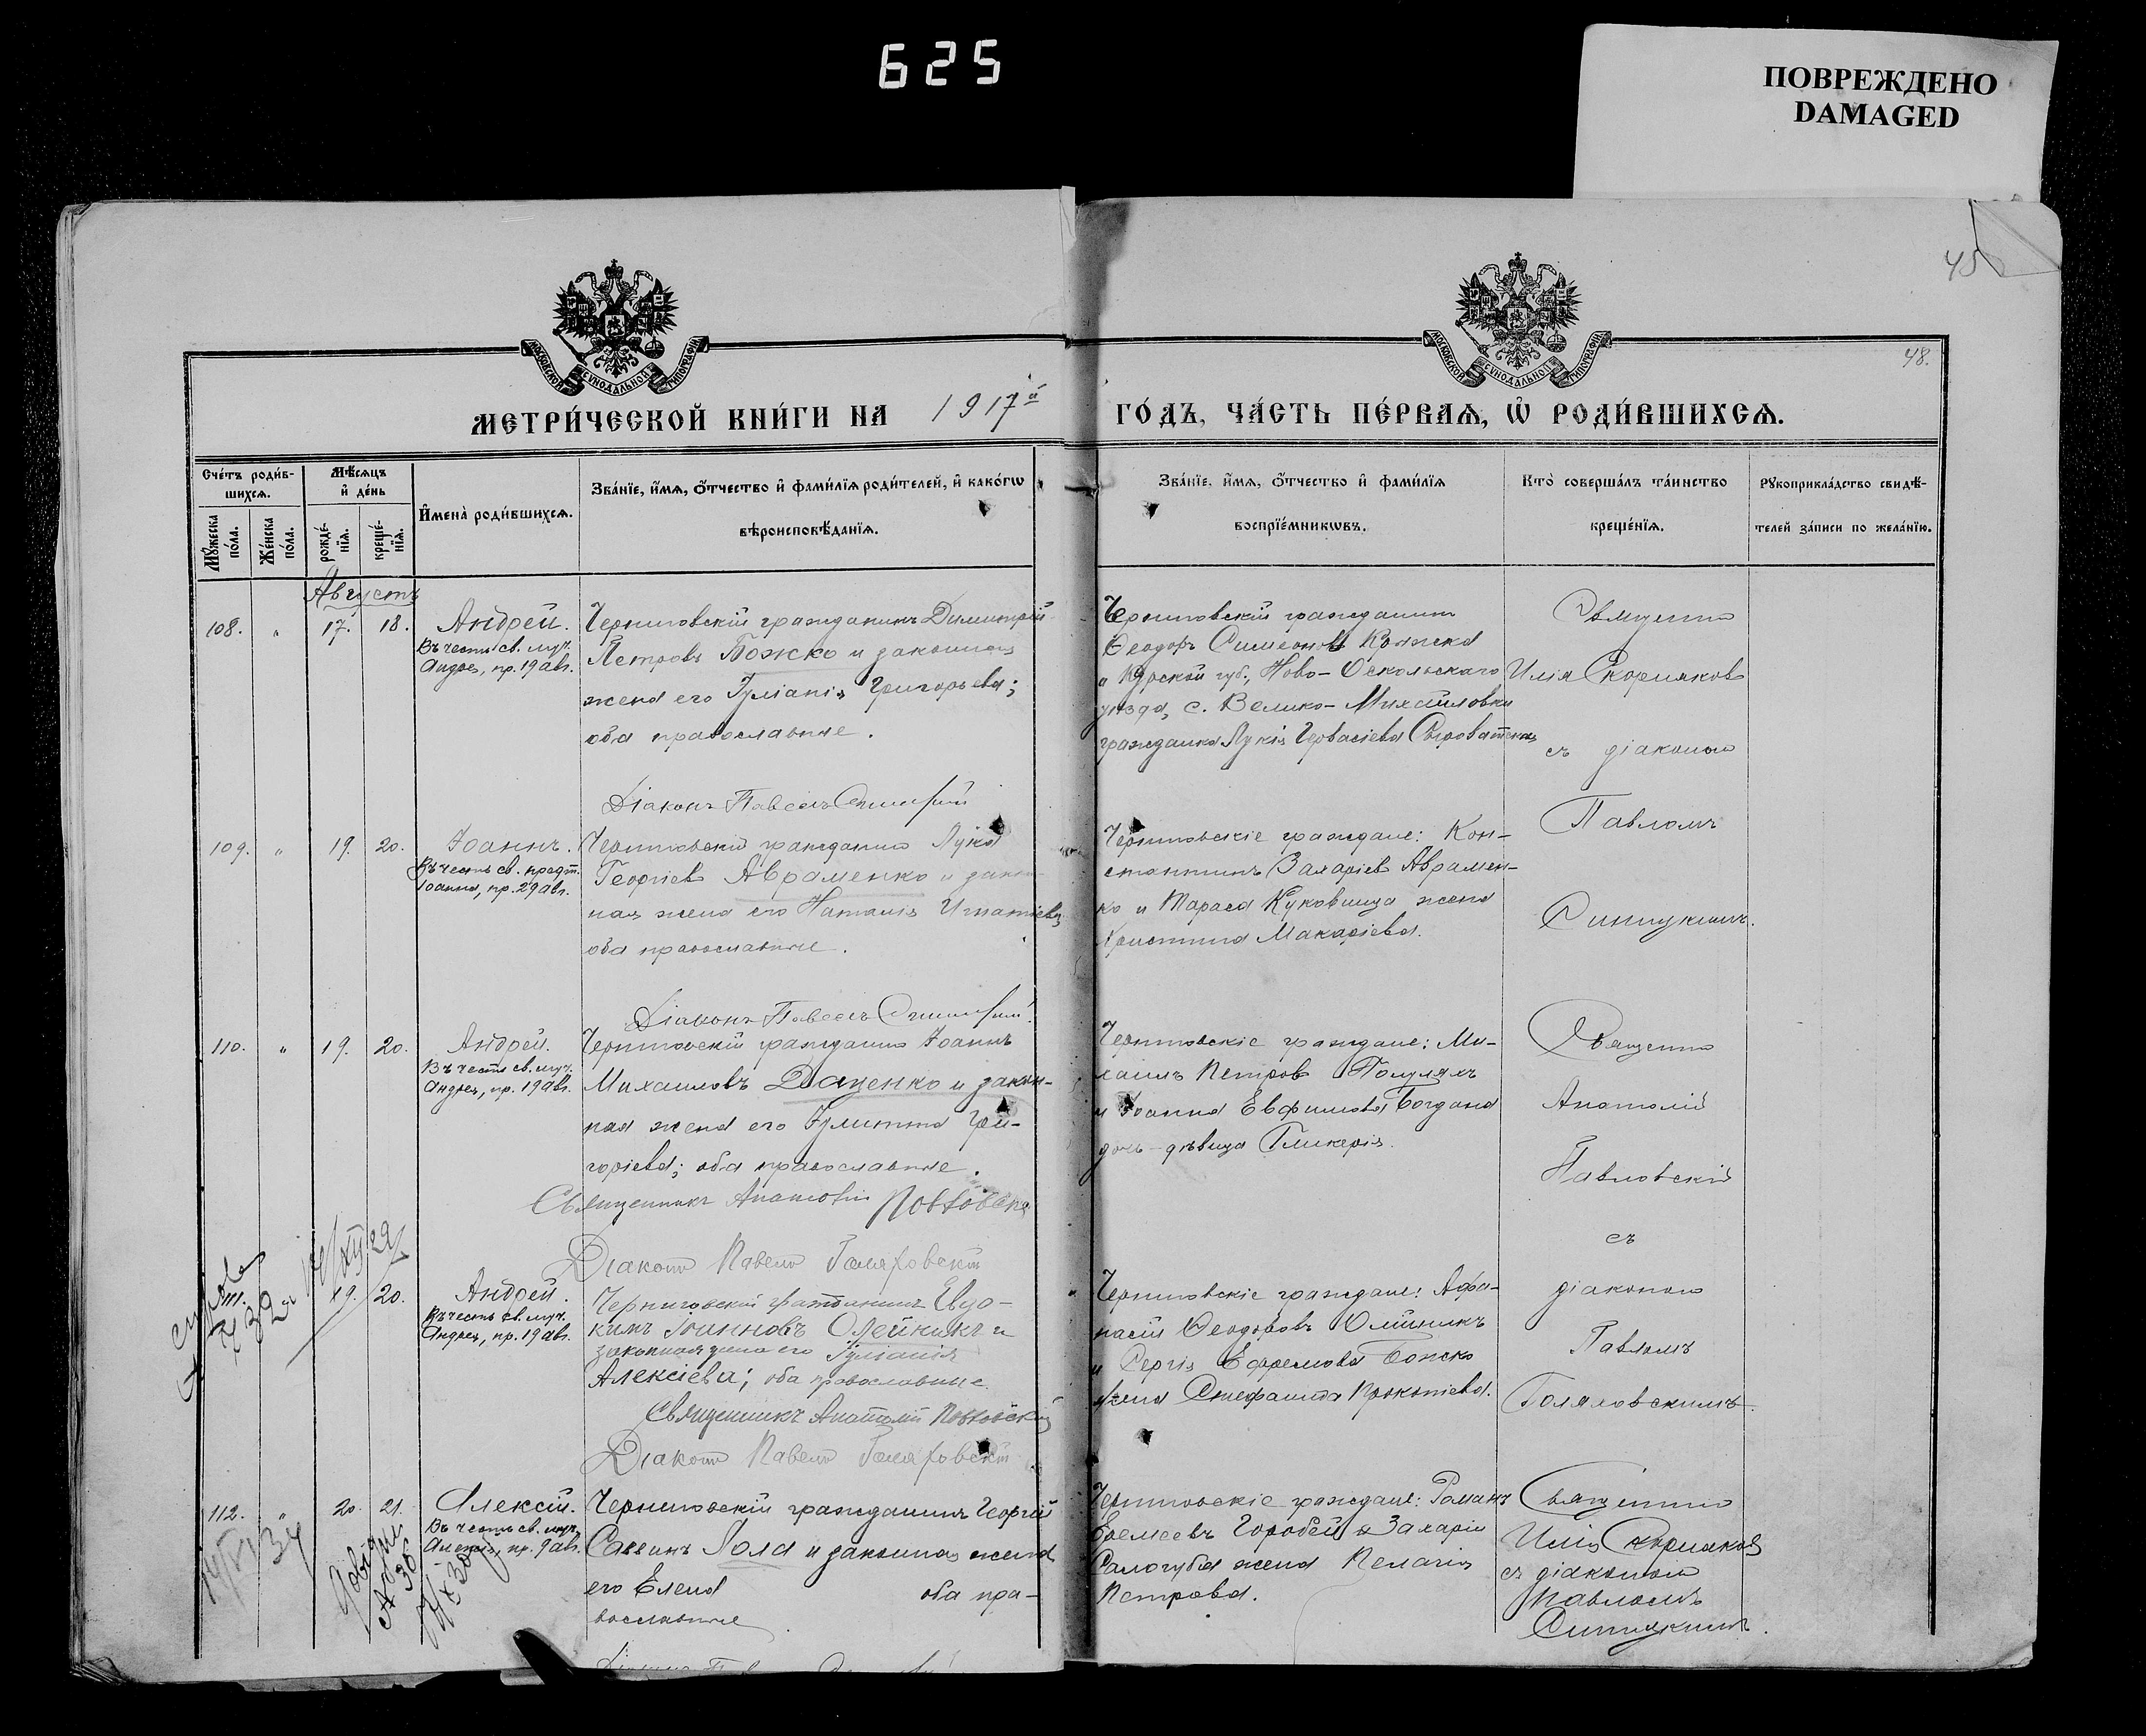 625
ПОВРЕЖДЕНО
DAMAGED
45
48.
МОСКОВСКОЙ СѴНОДАЛЬНОЙ ТИПОГРАФІИ
МОСКОВСКОЙ СѴНОДАЛЬНОЙ ТИПОГРАФІИ
МЕТРИ́ЧЕСКОЙ КНИ́ГИ НА 1917й ГО́ДЪ, ЧА́СТЬ ПЕ́РВАѦ, Ѡ҆ РОДИ́ВШИХСѦ.
Сче́тъ роди́в-
шихсѧ.
Мꙋ́жеска по́ла.
Же́нска по́ла.
Мѣ́сѧцъ
и҆ де́нь
рожде́-
нїѧ.
креще́-
нїѧ.
И҆мена̀ роди́вшихсѧ.
Зва́нїе, и҆́мѧ, ѻ҆́тчество и҆ фами́лїѧ роди́телей, и҆ како́гѡ
вѣроисповѣ́данїѧ.
Зва́нїе, и҆́мѧ, ѻ҆́тчество и҆ фами́лїѧ
воспрїе́мникѡвъ.
Кто̀ соверша́лъ та́инство
креще́нїѧ.
Рꙋкоприкла́дство свидѣ́-
телей за́писи по жела́нїю.
Августъ
108. " 17. 18.
Андрей.
Въ честь св. муч.
Андрея, пр. 19 авг.
Черниговскій гражданинъ Димитрій
Петровъ Божко и законная
жена его Іуліанія Григорьева;
оба православные.
Діаконъ Павелъ
Черниговскій гражданинъ
Ѳеодоръ Симеоновъ Княжка
и Курской губ., Ново-Оскольскаго
уѣзда, с. Велико-Михайловки
гражданка Лукія Гервасіева
Священникъ
Илія Скорняковъ
съ діакономъ
Павломъ
109. " 19. 20.
Іоаннъ.
Въ честь св. предт.
Іоанна, пр. 29 авг.
Черниговскій гражданинъ Лука
Георгіевъ Авраменко и закон-
ная жена его Наталія Игнатіева
оба православные.
Діаконъ Павелъ
Черниговскіе граждане: Кон-
стантинъ Захаріевъ Аврамен-
ко и Тараса Куковица жена
Христина Макаріева.
110. " 19. 20.
Андрей.
Въ честь св. муч.
Андрея, пр. 19 авг.
Черниговскій гражданинъ Іоаннъ
Михаиловъ Даценко и закон-
ная жена его Іулитта Гри-
горіева; оба православные.
Священникъ Анатолій Павловскій
Діаконъ Павелъ Голяховскій
Черниговскіе граждане: Ми-
хаилъ Петровъ
и Іоанна Евфимова Богдана
дочь-дѣвица Гликерія.
Священникъ
Анатолій
Павловскій
съ
діакономъ
Павломъ
Голяховскимъ.
111. 19. 20.
Андрей.
Въ честь св. муч.
Андрея, пр. 19 авг.
Черниговскій гражданинъ Евдо-
кимъ Іоанновъ Олейникъ и
законная жена его Іуліанія
Алексіева; оба православные.
Священникъ Анатолій Павловскій
Діаконъ Павелъ Голяховскій
Черниговскіе граждане: Афа-
насій Ѳеодоровъ Олійникъ
и Сергія Ефремова Божко
жена Стефанида Прокопіева.
112. " 20. 21.
Алексій.
Въ честь св. муч.
Алексія, пр. 9 авг.
Черниговскій гражданинъ Георгій
Саввинъ и законная жена
его Елена оба пра-
вославные
Черниговскіе граждане: Романъ
Горобей и Захарія
Самогуба жена Пелагія
Петрова.
Священникъ
Илія Скорняковъ
съ діакономъ
Павломъ